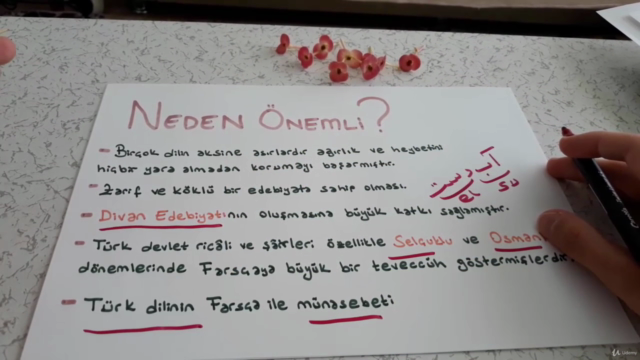 NEDEN ÖNEMLİ?
- Birçok dilin aksine asırlardır ağırlık ve heybetini
hiçbir yara almadan korumayı başarmıştır.
- Zarif ve köklü bir edebiyata sahip olması.
آب دست
su el
- Divan Edebiyatının oluşmasına büyük katkı sağlamıştır.
- Türk devlet ricâli ve şâirleri özellikle Selçuklu ve Osmanlı
dönemlerinde Farsçaya büyük bir teveccüh göstermişlerdir.
- Türk dilinin Farsça ile münasebeti